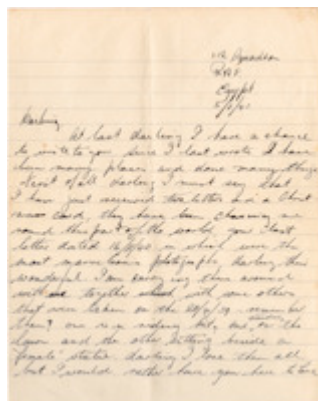 112 Squadron
R.A.F.
Egypt
5/1/41
Darling
At last darling I have a chance
to write to you since I last wrote I have
been many places and done many things
First of all darling I must say that
I have just received two letters and a
card, they have been chasing me
round this part of the world, your last
letter dated in which were the
most marvellous photographs darling they
wonderful. I am carrying them around
with me together with some others
that were taken on the remember
them? one is in me, on the
lawn and the other sitting beside a
female statue. darling I love them all
but I would rather have you here to love